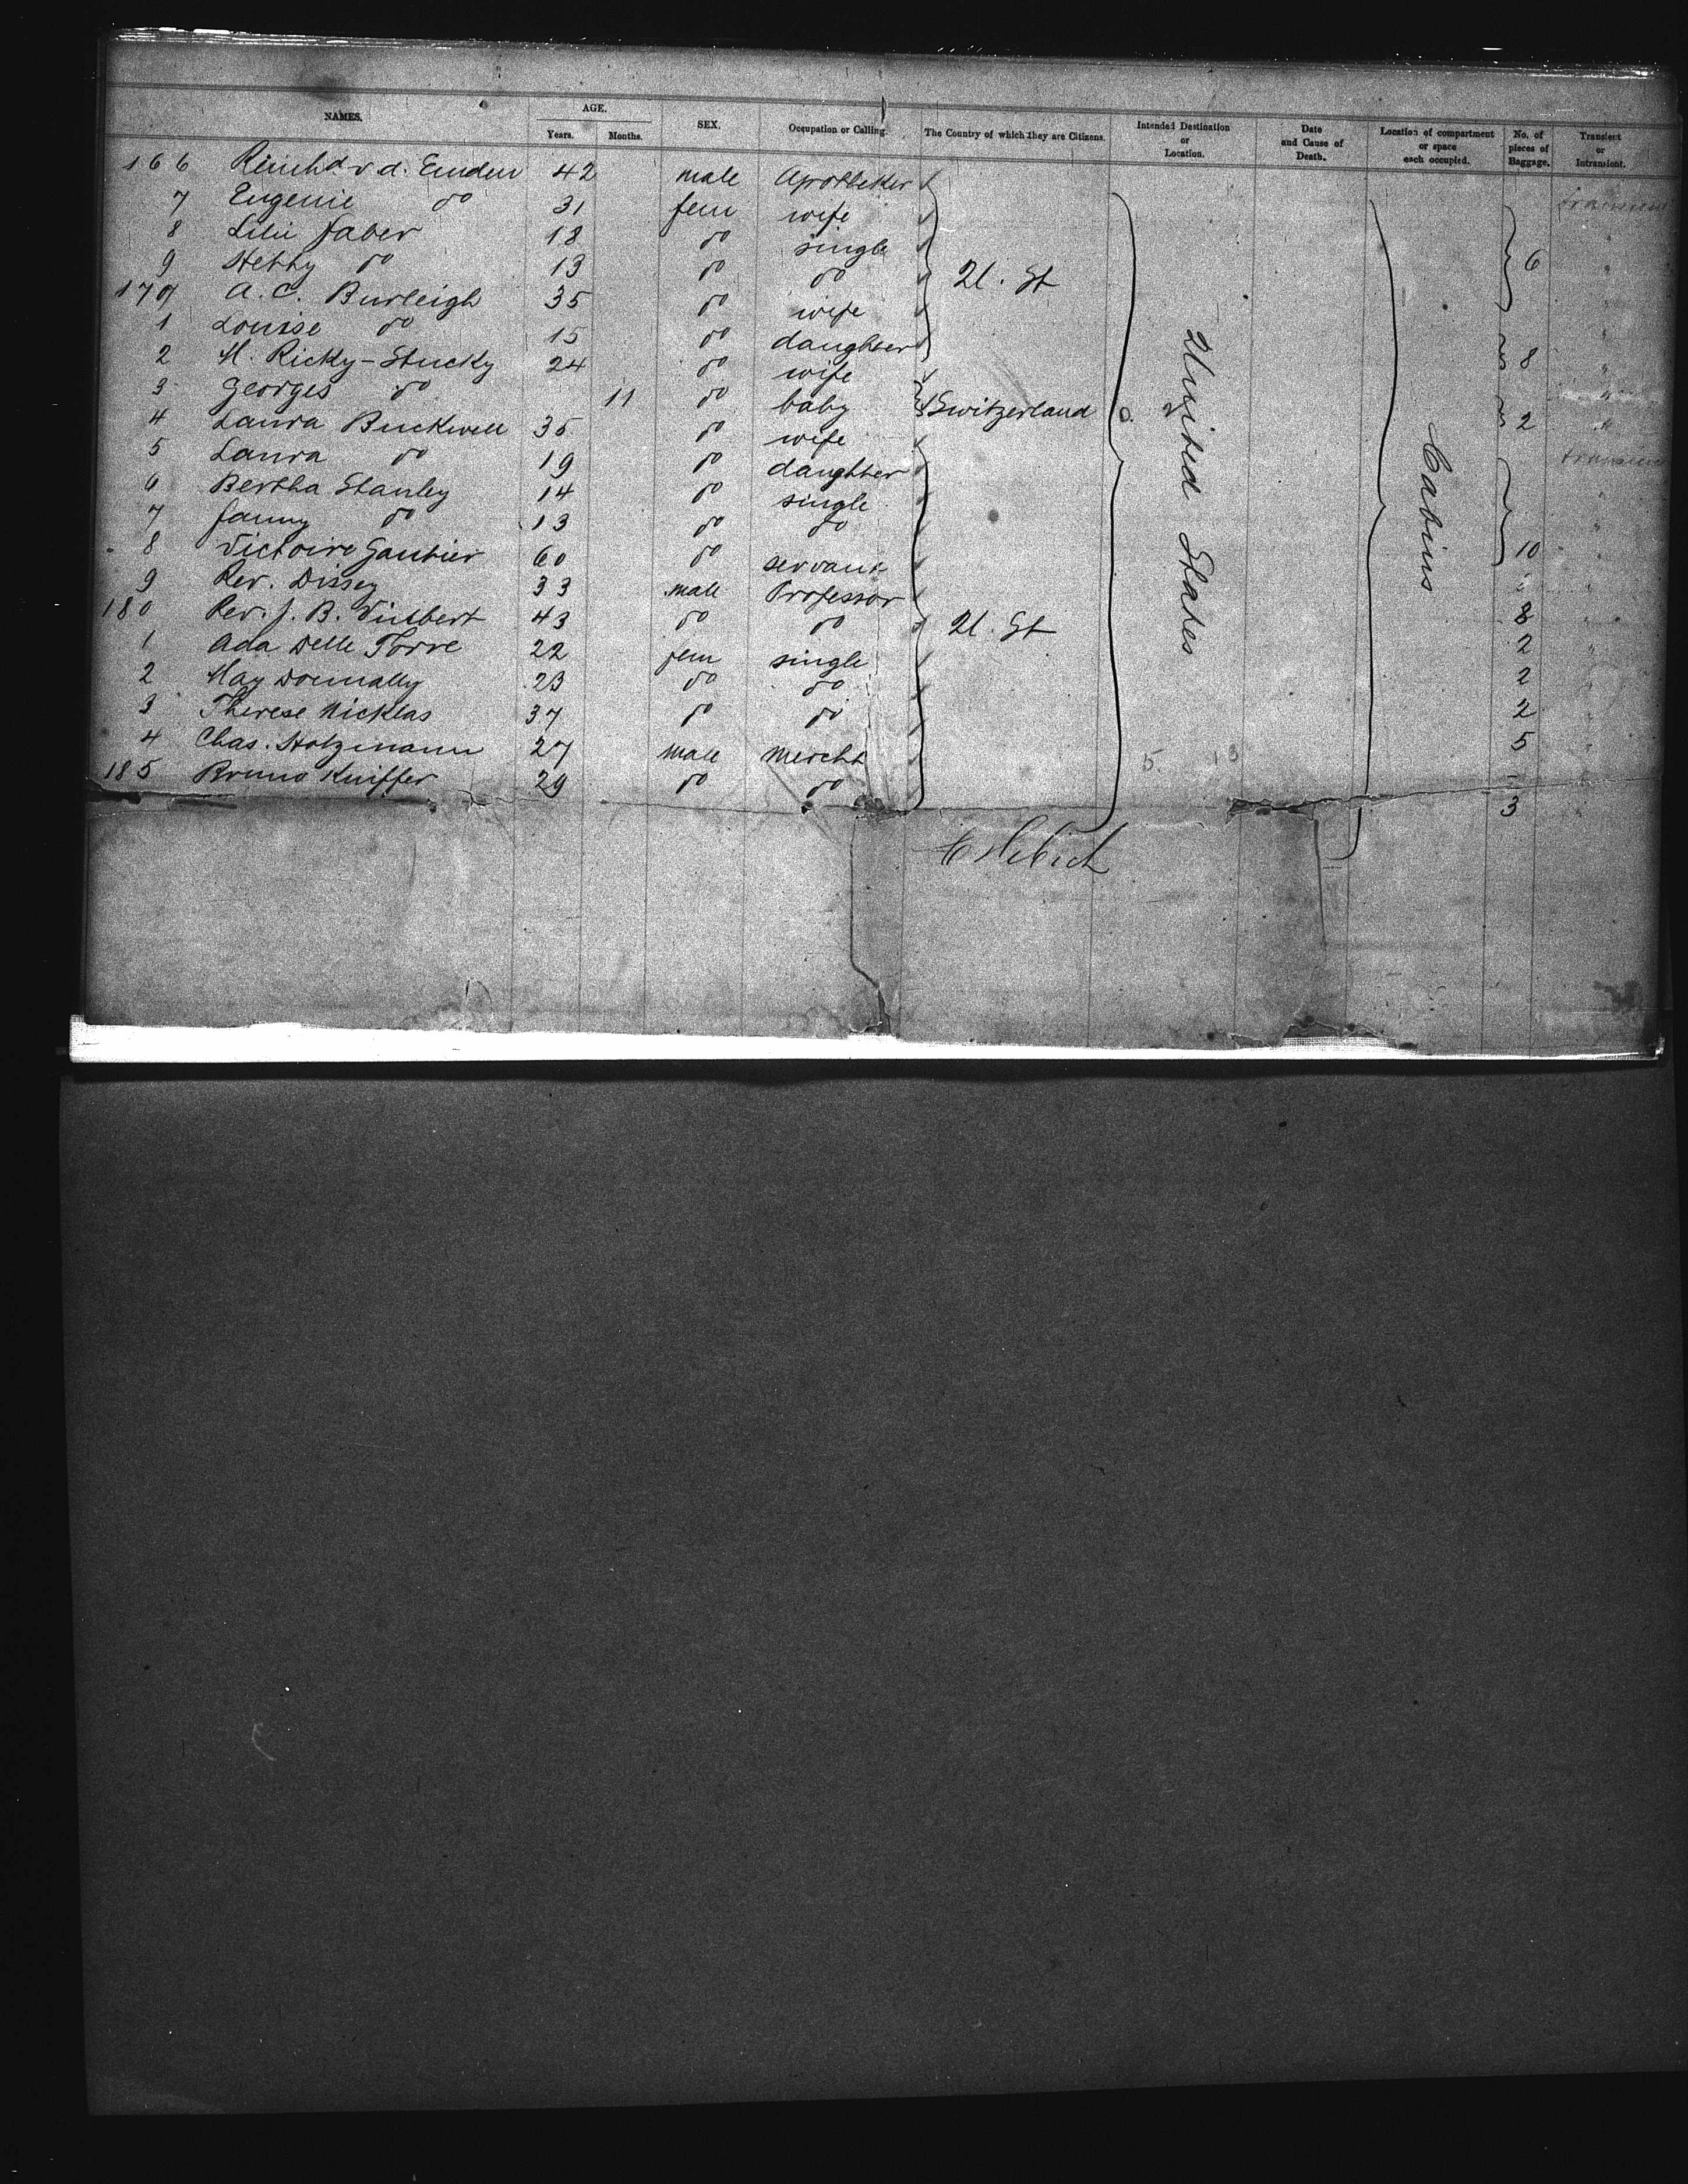 NAMES. AGE. Years. Months. SEX. Occupation or Calling. The Country of which they are Citizens. Intended Destination or Location. Date and Cause of Death. Location of compartment or space each occupied. No. of pieces of Baggage. Transient or Intransient.
166 Reinhd v. d. Emden 42 male Apotheker
7 Eugenie do 31 fem wife
8 Lilli Faber 18 do single
9 Hetty do 13 do do U. St 6
170 A. C. Burleigh 35 do wife
1 Louise do 15 do daughter
2 M. Ricky-Stucky 24 do wife 8
3 Georges do 11 do baby Switzerland
4 Laura Buckwell 35 do wife 2
5 Laura do 19 do daughter transient
6 Bertha Stanley 14 do single
7 Fanny do 13 do do
8 Victoire Gautier 60 do servant 10
9 Rev. Dissez 33 male Professor
180 Rev. J. B. Vuibert 43 do do U. St 8
1 Ada Delle Torre 22 fem single 2
2 May Donnally 23 do do 2
3 Therese Nicklas 37 do do 2
4 Chas. Holzmann 27 male Mercht 5
185 Bruno Kniffer 29 do do 3
United States
Cabins